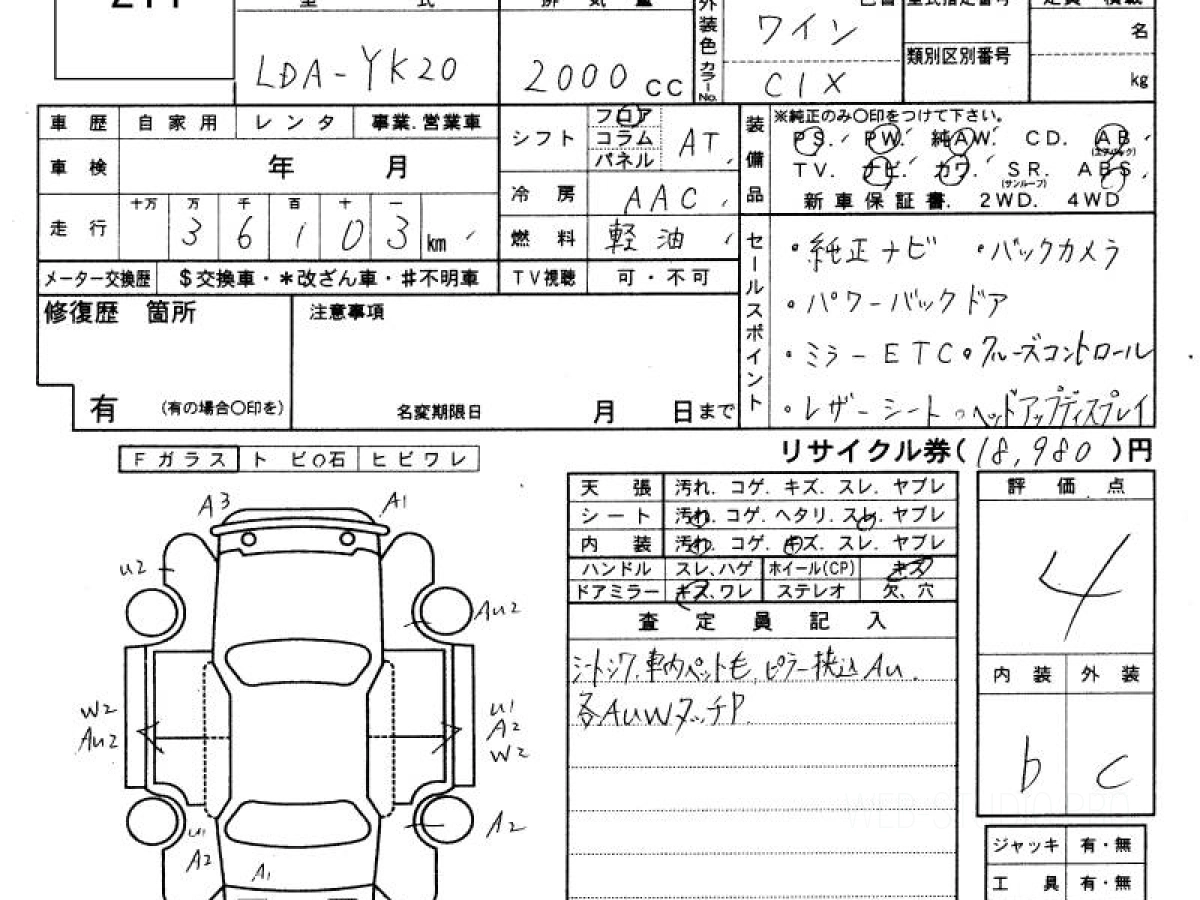 LDA-YK20
2000 cc
外装色 カラーNo.
ワイン
C1X
類別区別番号
名
kg
車歴 自家用 レンタ 事業.営業車
車検 年 月
走行 十万 万 千 百 十 一
3 6 1 0 3 km
メーター交換歴 $交換車・*改ざん車・#不明車
シフト フロア コラム パネル AT
冷房 AAC
燃料 軽油
TV視聴 可・不可
装備品
※純正のみ○印をつけて下さい。
PS. PW. 純AW. CD. AB (エアバック)
TV. ナビ. カワ. SR. (サンルーフ) ABS.
新車保証書. 2WD. 4WD
セールスポイント
・純正ナビ ・バックカメラ
・パワーバックドア
・ミラーETC ・クルーズコントロール
・レザーシート ・ヘッドアップディスプレイ
修復歴 箇所
有 (有の場合○印を)
注意事項
名変期限日 月 日まで
リサイクル券(18,980)円
Fガラス トビ石 ヒビワレ
A3 A1
U2
AU2
W2
AU2
U1
A2
W2
U1
A2
A2
A1
天張 汚れ. コゲ. キズ. スレ. ヤブレ
シート 汚れ. コゲ. ヘタリ. スレ. ヤブレ
内装 汚れ. コゲ. キズ. スレ. ヤブレ
ハンドル スレ、ハゲ ホイール(CP) キズ
ドアミラー キズ、ワレ ステレオ 欠、穴
査定員記入
シートシワ.車内ペット毛.ピラー挟込AU.
各AUWタッチP
評価点
4
内装 外装
b c
ジャッキ 有・無
工具 有・無